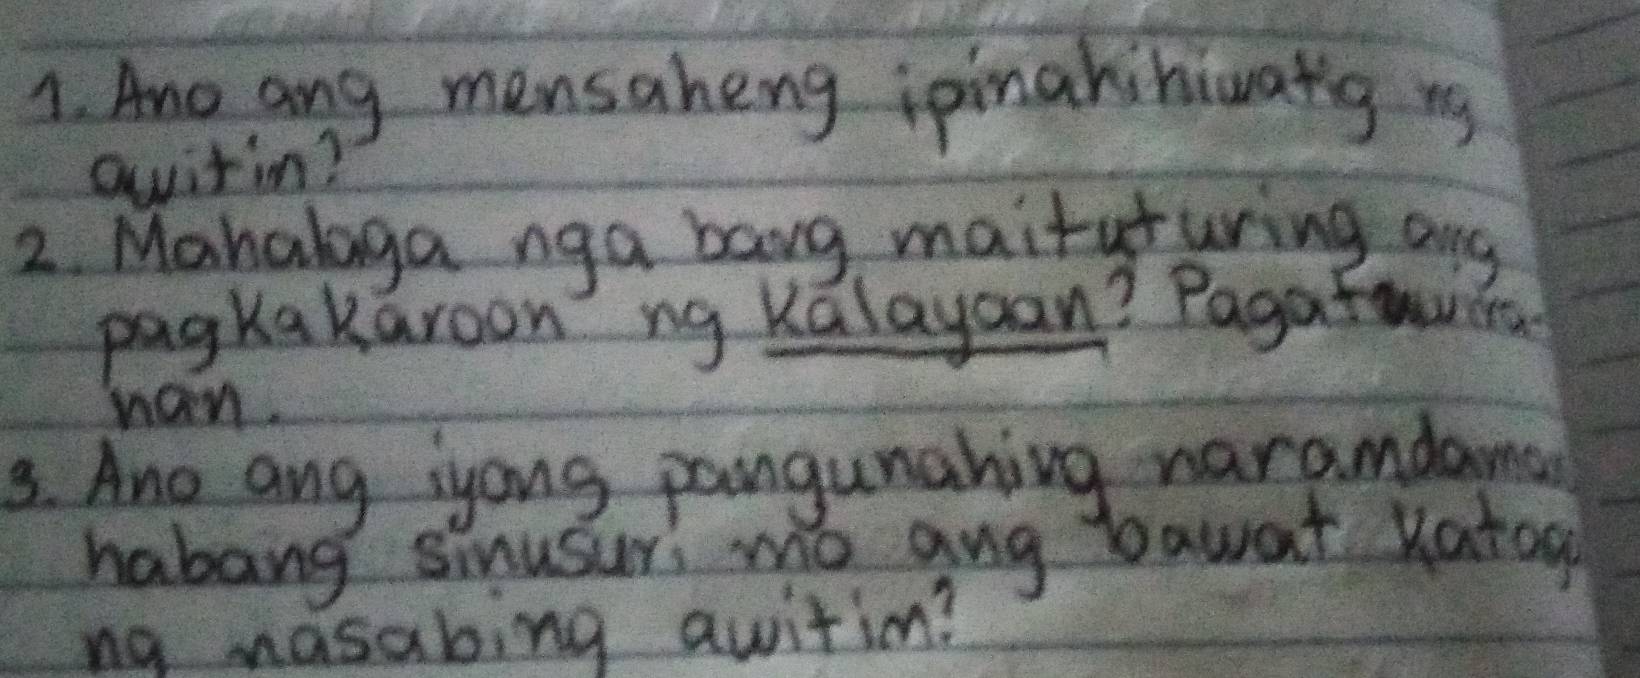 1. Ano ang mensaheng ipinahihiwatig ng
awitin?
2. Mahalaga nga bang maituturing ang
pagkakaroon ng kalayaan? Pagatuwira-
nan.
3. Ano ang iyong pangunahing naramdaman
habang sinusuri mo ang bawat katag
ng nasabing awitin?